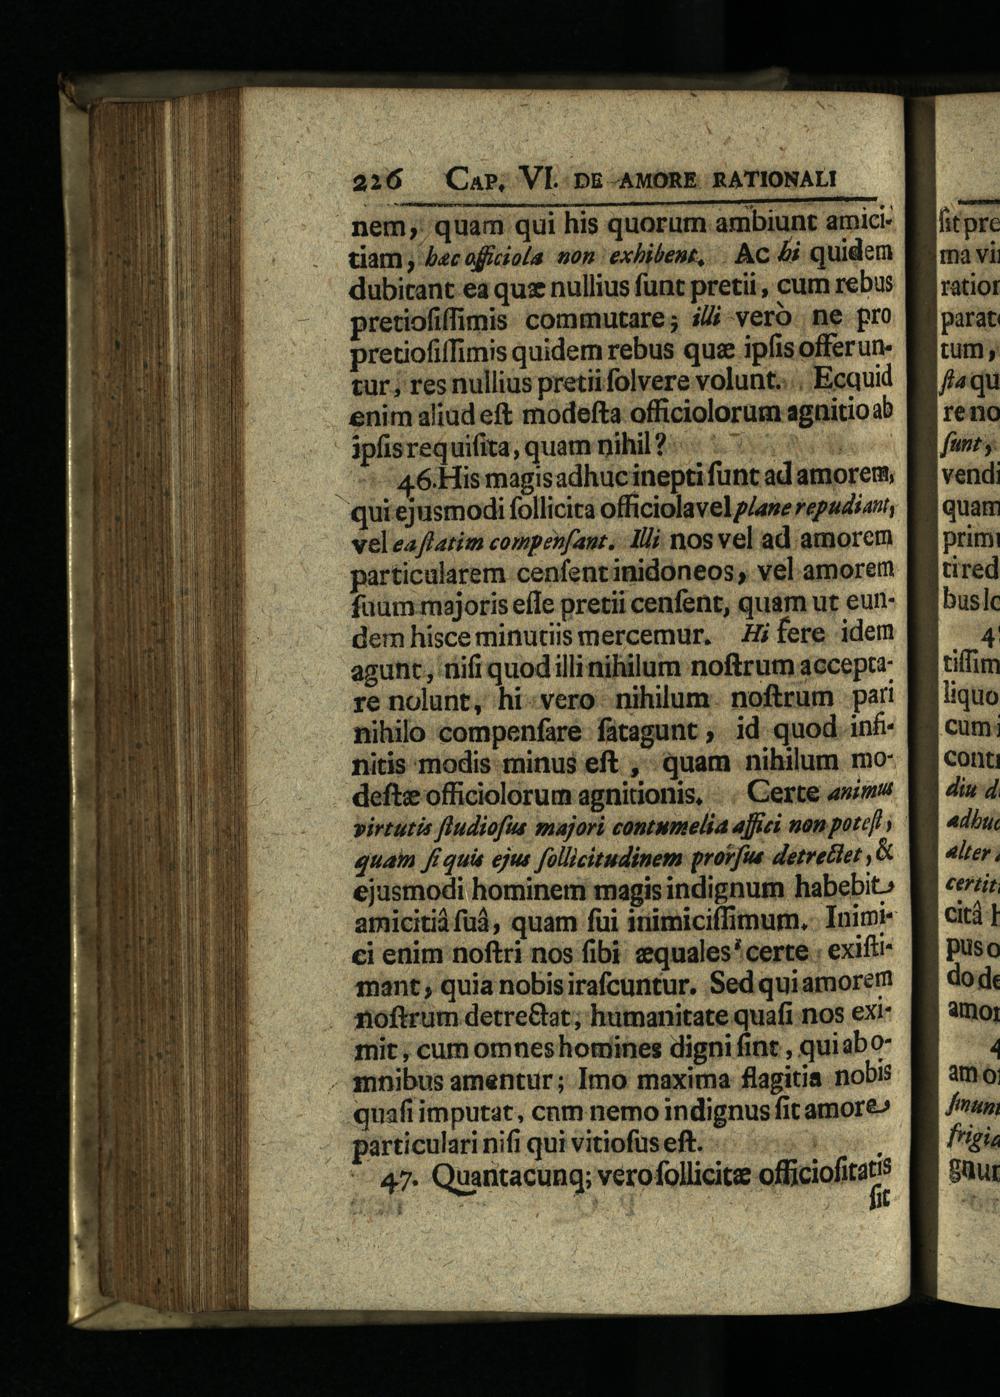 226 CAP. VI. DE AMORE RATIONALI
nem, quam qui his quorum ambiunt amici-
tiam, hæc officiola non exhibent. Ac hi quidem
dubitant ea quæ nullius ſunt pretii, cum rebus
pretioſiſſimis commutare; illi verò ne pro
pretioſiſſimis quidem rebus quæ ipſis offerun-
tur, res nullius pretii ſolvere volunt. Ecquid
enim aliud eſt modeſta officiolorum agnitio ab
ipſis requiſita, quam nihil?
46. His magis adhuc inepti ſunt ad amorem,
qui ejusmodi ſollicita officiola vel plane repudiant,
vel ea ſtatim compenſant. Illi nos vel ad amorem
particularem cenſent inidoneos, vel amorem
ſuum majoris eſſe pretii cenſent, quam ut eun-
dem hisce minutiis mercemur. Hi fere idem
agunt, niſi quod illi nihilum noſtrum accepta-
re nolunt, hi vero nihilum noſtrum pari
nihilo compenſare ſatagunt, id quod infi-
nitis modis minus eſt, quam nihilum mo-
deſtæ officiolorum agnitionis. Certe animus
virtutis ſtudioſus majori contumelia affici non poteſt,
quam ſi quis ejus ſollicitudinem prorſus detrectet, &
ejusmodi hominem magis indignum habebit
amicitiâ ſuâ, quam ſui inimiciſſimum. Inimi-
ci enim noſtri nos ſibi æquales certe exiſti-
mant, quia nobis iraſcuntur. Sed qui amorem
noſtrum detrectat, humanitate quaſi nos exi-
mit, cum omnes homines digni ſint, qui ab o-
mnibus amentur; Imo maxima flagitia nobis
quaſi imputat, cnm nemo indignus ſit amore
particulari niſi qui vitioſus eſt.
47. Quantacunq; vero ſollicitæ officioſitatis
ſit
ſit pre
ma vi
ration
parat
tum,
ſta qu
re no
ſunt,
vendi
quam
prim
ti red
bus lo
4
tiſſim
liquo
cum i
cont
diu d
adhuc
alter
certit
citâ h
pus o
do de
amor
4
am of
frigi
gnur